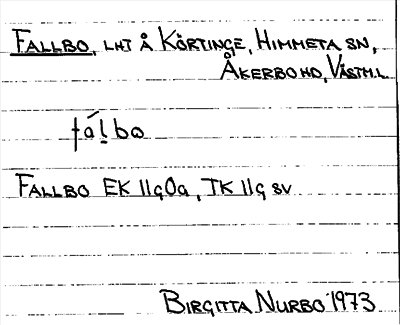 FALLBO, LHT Å KÖRTINGE, HIMMETA SN,
ÅKERBO HD, VÄSTML.
fáḷbo
FALLBO EK 11g0a, TK 11g SV
BIRGITTA NURBO 1973